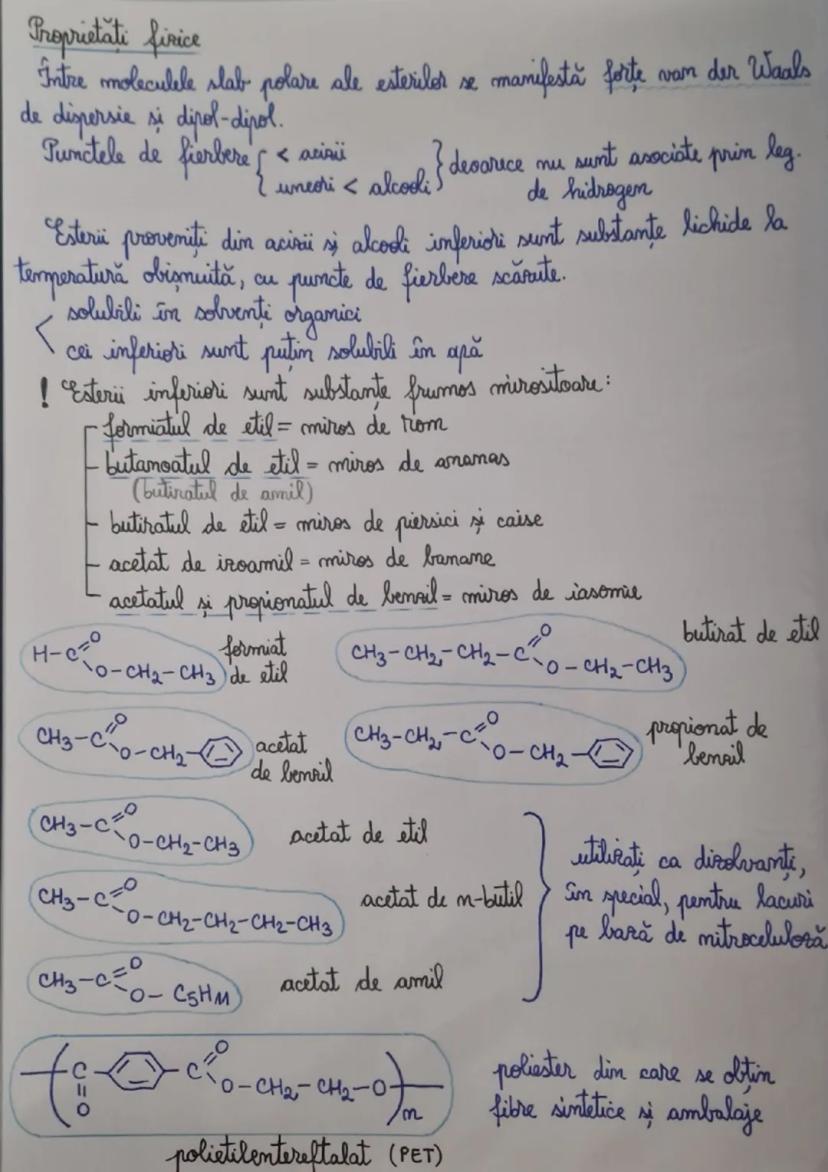 Proprietăți fizice
Între moleculele slab polare ale esterilor se manifestă forțe van der Waals
de dispersie și dipol-dipol.
Punctele de fierbere { < acizii } deoarece nu sunt asociate prin leg.
{ uneori < alcooli } de hidrogen
Esterii proveniți din acizii și alcooli inferiori sunt substanțe lichide la
temperatură obișnuită, cu puncte de fierbere scăzute.
solubili în solvenți organici
cei inferiori sunt puțin solubili în apă
! Esterii inferiori sunt substanțe frumos mirositoare:
formiatul de etil = miros de rom
butanoatul de etil = miros de ananas
(butiratul de amil)
butiratul de etil = miros de piersici și caise
acetat de izoamil = miros de banane
acetatul și propionatul de benzil = miros de iasomie
H-C=O O-CH2-CH3 formiat de etil
CH3-CH2-CH2-C=O O-CH2-CH3 butirat de etil
CH3-C=O O-CH2- acetat de benzil
CH3-CH2-C=O O-CH2- propionat de benzil
CH3-C=O O-CH2-CH3 acetat de etil
CH3-C=O O-CH2-CH2-CH2-CH3 acetat de n-butil
CH3-C=O O-C5H11 acetat de amil
utilizați ca dizolvanți,
în special, pentru lacuri
pe bază de nitroceluloză
(C=O C=O O-CH2-CH2-O)n
poliester din care se obțin
fibre sintetice și ambalaje
polietilentereftalat (PET)